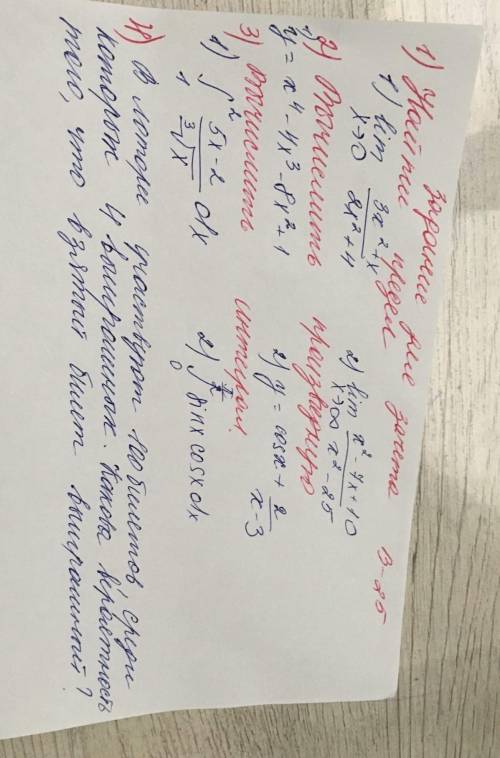 Задание для зачета В-25
1) Найти предел
1) lim x→0 (3x² + x)/(2x² + 4) 2) lim x→∞ (x² - 7x + 10)/(x² - 25)
2) Вычислить производную
1) y = x⁴ - 4x³ - 8x² + 1 2) y = cosx + 2/(x - 3)
3) Вычислить интеграл.
1) ∫₁² (5x - 2)/∛x dx 2) ∫₀^(π/2) sinx cosx dx
4) В лотерее участвуют 100 билетов, среди
которых 4 выигрышных. Какова вероятность
того, что взятый билет выигрышный?